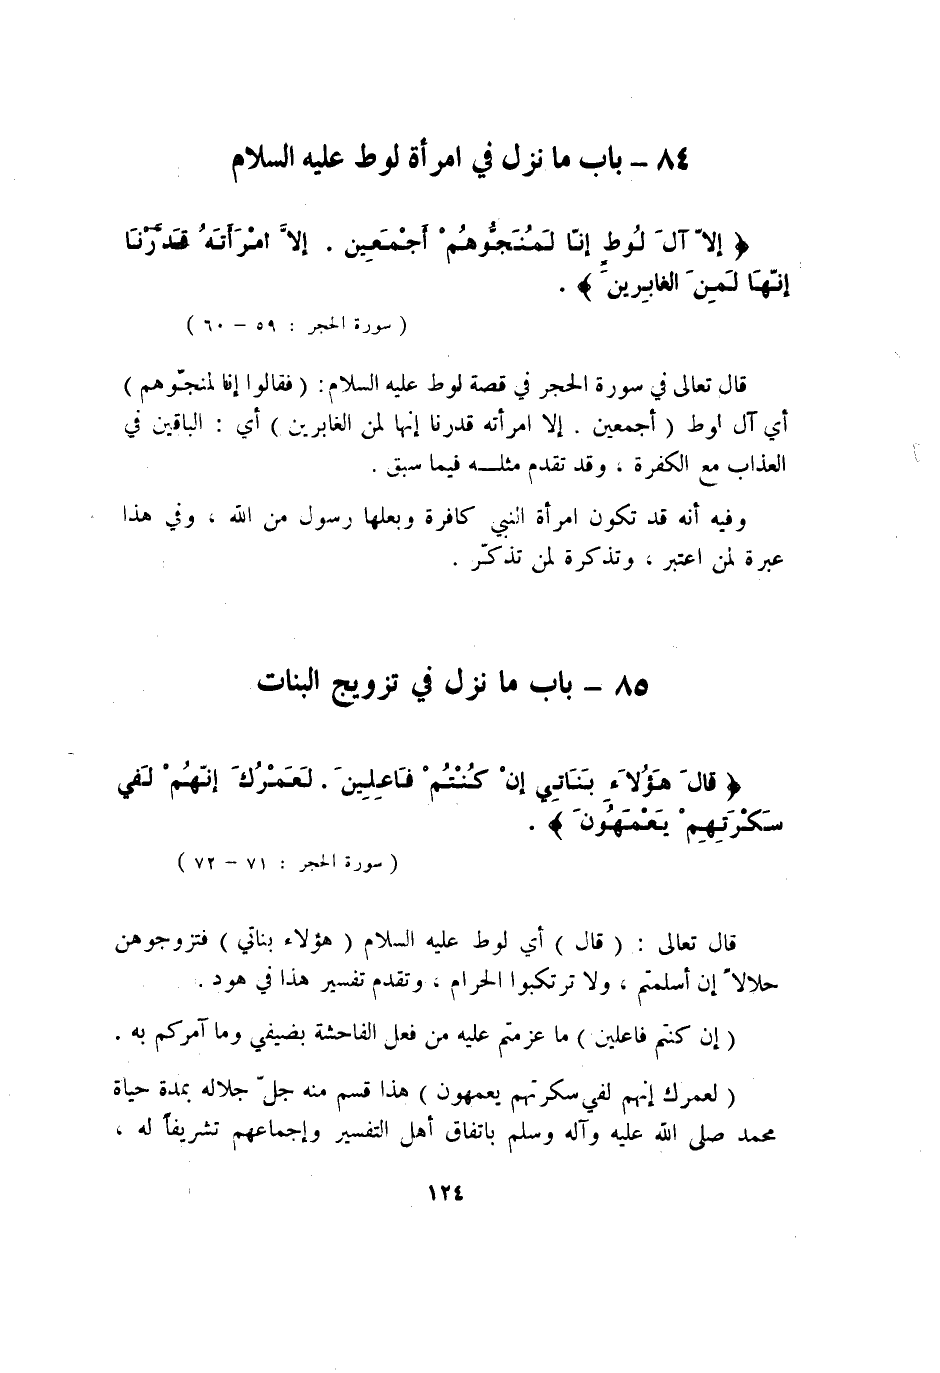 ٨٤ – باب ما نزل في امرأة لوط عليه السلام
﴿ إلاّ آلَ لُوطٍ إنّا لَمُنَجُّوهُمْ أَجْمَعَين . إلاَّ امْرَأَتَهُ قَدَّرْنَا
إنّهَا لَمِنَ الغابِرِينَ ﴾ .
( سورة الحجر : ٥٩ – ٦٠ )
قال تعالى في سورة الحجر في قصة لوط عليه السلام : ( فقالوا إنا لمنجّوهم )
أي آل لوط ( أجمعين . إلا امرأته قدرنا إنها لمن الغابرين ) أي : الباقين في
العذاب مع الكفرة ، وقد تقدم مثلـــه فيما سبق .
وفيه أنه قد تكون امرأة النبي كافرة وبعلها رسول من الله ، وفي هذا
عبرة لمن اعتبر ، وتذكرة لمن تذكّر .
٨٥ – باب ما نزل في تزويج البنات
﴿ قالَ هَؤُلاَءِ بَنَاتِي إن كُنْتُمْ فَاعِلِينَ . لَعَمْرُكَ إنّهُمْ لَفي
سَكْرَتِهِمْ يَعْمَهُونَ ﴾ .
( سورة الحجر : ٧١ – ٧٢ )
قال تعالى : ( قال ) أي لوط عليه السلام ( هؤلاء بناتي ) فتزوجوهن
حلالاً إن أسلمتم ، ولا ترتكبوا الحرام ، وتقدم تفسير هذا في هود .
( إن كنتم فاعلين ) ما عزمتم عليه من فعل الفاحشة بضيفي وما آمركم به .
( لعمرك إنهم لفي سكرتهم يعمهون ) هذا قسم منه جلّ جلاله بمدة حياة
محمد صلى الله عليه وآله وسلم باتفاق أهل التفسير وإجماعهم تشريفاً له ،
١٢٤